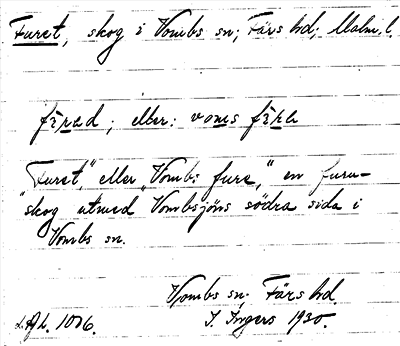 Furet, skog i Vombs sn; Färs hd; Malm. l.
; eller: voms
"Furet," eller "Vombs fure," en furu-
skog utmed Vombsjöns södra sida i
Vombs sn.
Vombs sn. Färs hd.
I. Ingers 1930.
1006.